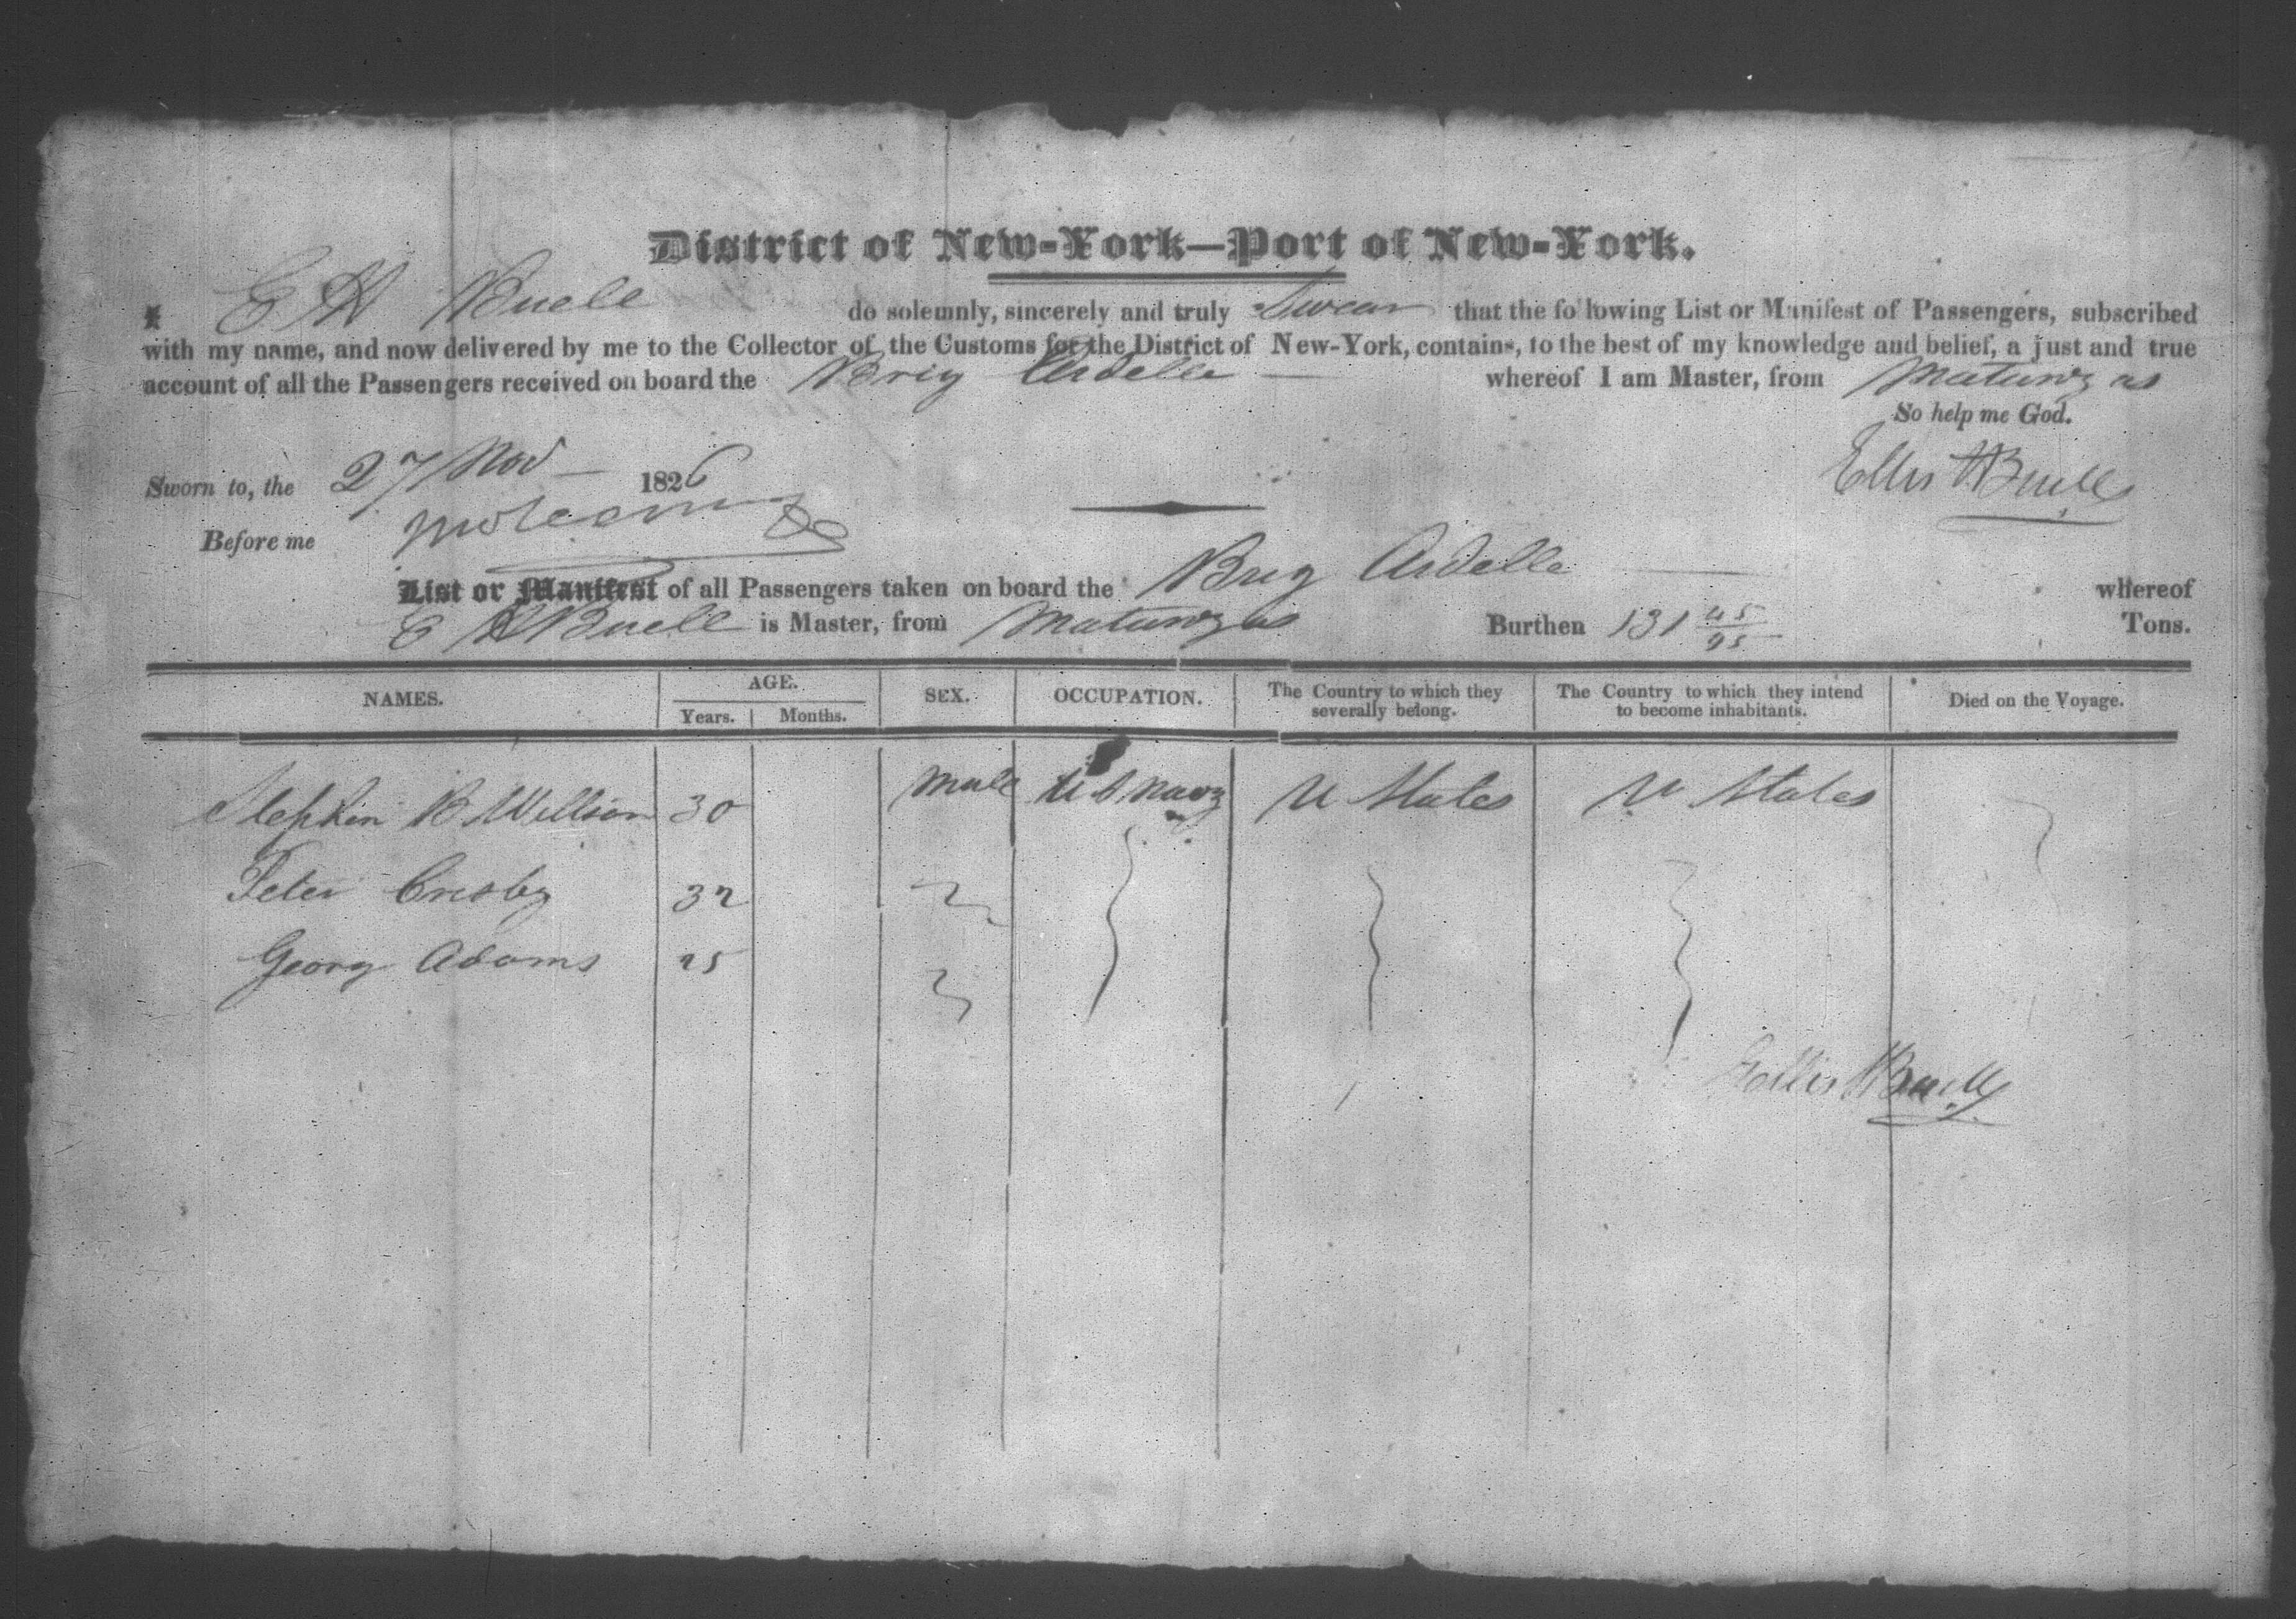 District of New-York—Port of New-York.
I E H Buell do solemnly, sincerely and truly Swear that the following List or Manifest of Passengers, subscribed
with my name, and now delivered by me to the Collector of the Customs for the District of New-York, contains, to the best of my knowledge and belief, a just and true
account of all the Passengers received on board the Brig Ardelle whereof I am Master, from Matanzas
So help me God.
Sworn to, the 27 Nov 1826 Ellis H Buell
Before me
List or Manifest of all Passengers taken on board the Brig Ardelle whereof
E H Buell is Master, from Matanzas Burthen 131 45/95 Tons.
NAMES. AGE. SEX. OCCUPATION. The Country to which they severally belong. The Country to which they intend to become inhabitants. Died on the Voyage.
Years. Months.
Stephen B Willson 30 Male U S Navy U States U States
Peter Crosby 32
Georg Adams 25
Ellis H Buell